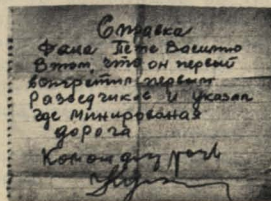 Справка
Дана Пепе Василию
В том, что он первый
встретил первых
разведчиков и указал
где минирована
дорога
Командир